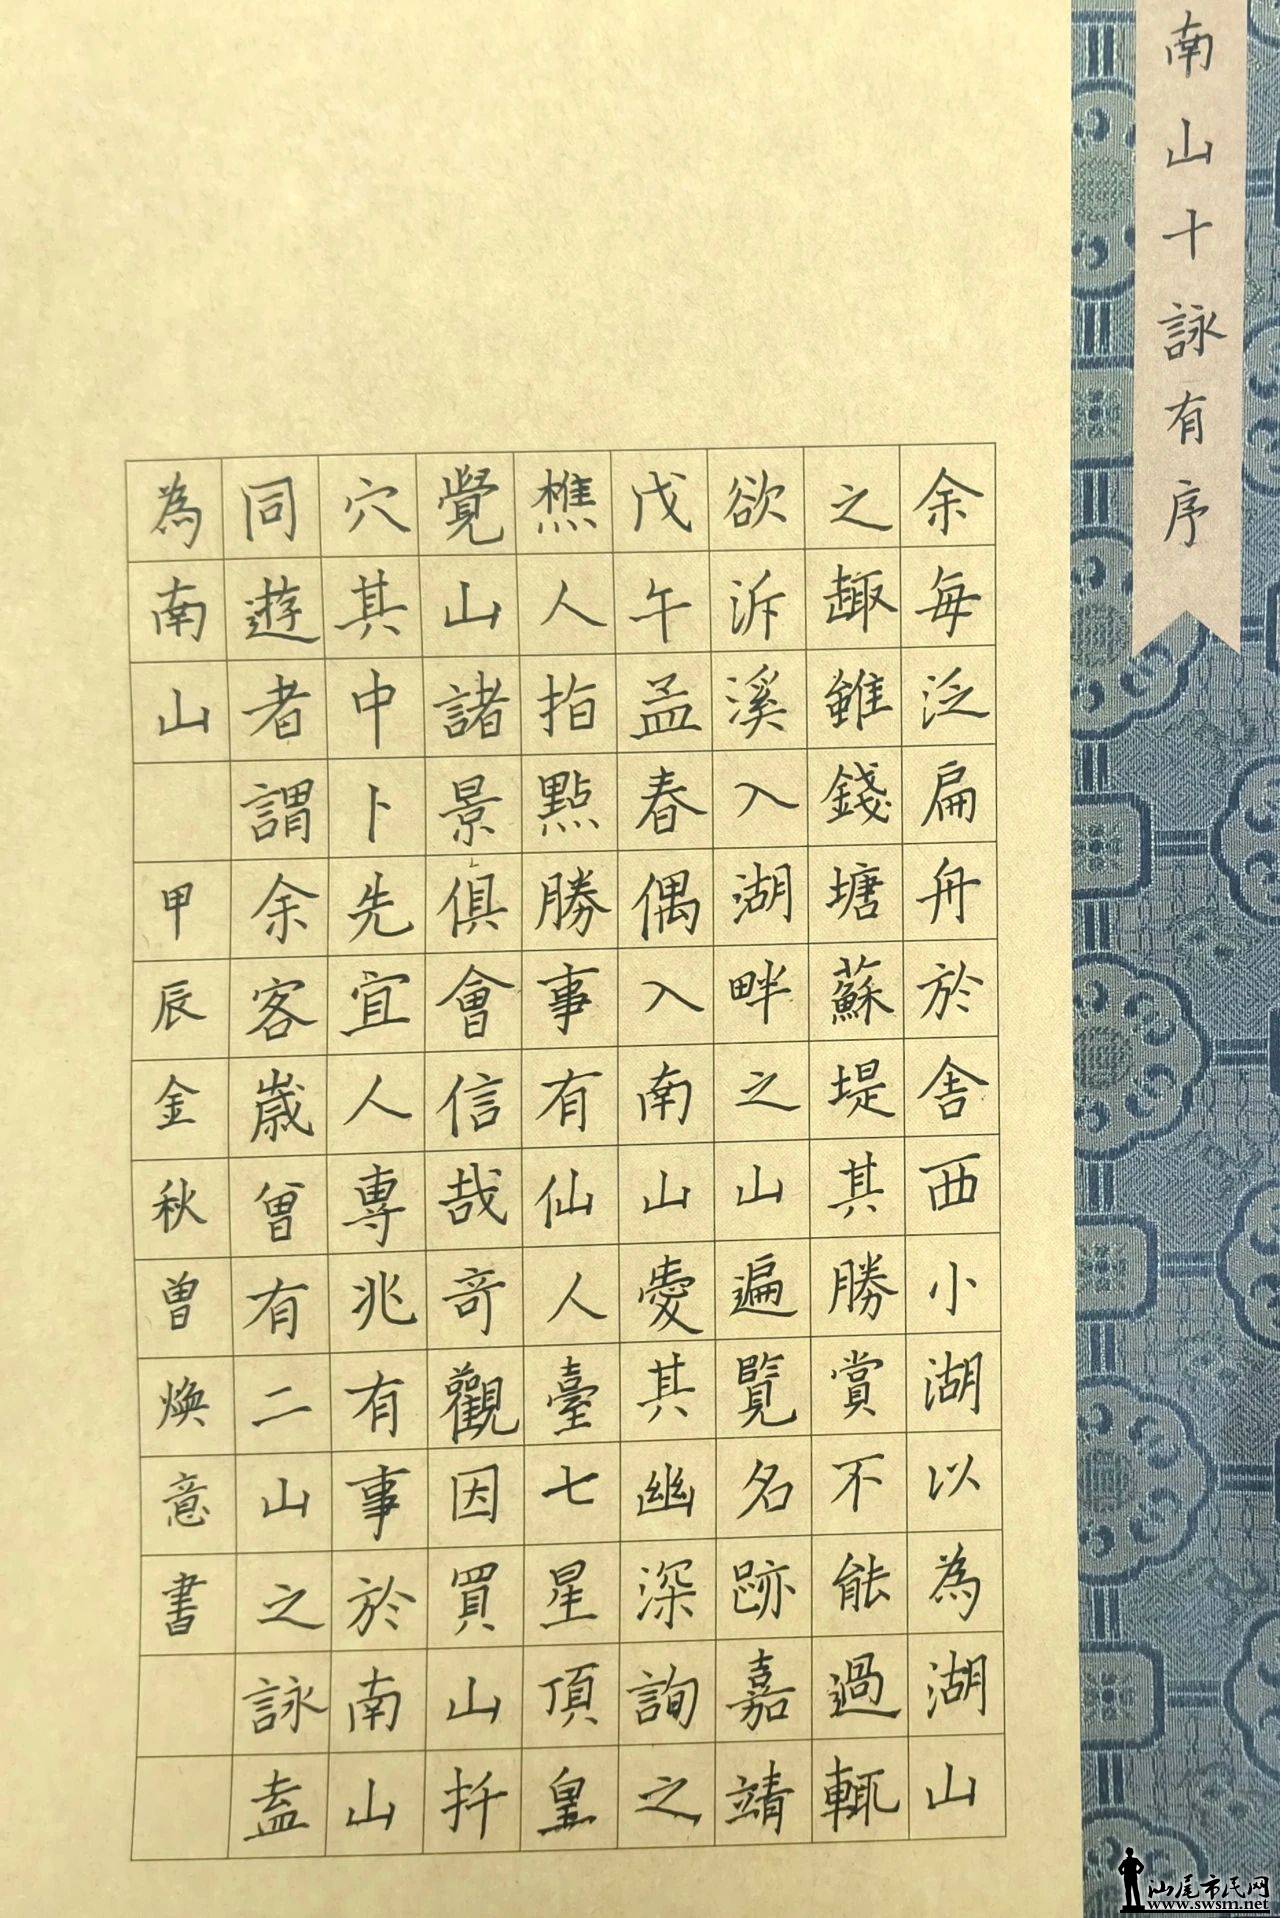 南山十詠有序
余每泛扁舟於舍西小湖以為湖山
之趣雖錢塘蘇堤其勝賞不能過輒
欲泝溪入湖畔之山遍覽名跡嘉靖
戊午孟春偶入南山愛其幽深詢之
樵人指點勝事有仙人臺七星頂皇
覺山諸景俱會信哉奇觀因買山扦
穴其中卜先宜人專兆有事於南山
同遊者謂余客嵗曾有二山之詠盍
為南山 甲辰金秋曾煥意書
汕尾市民网
www.swsm.net